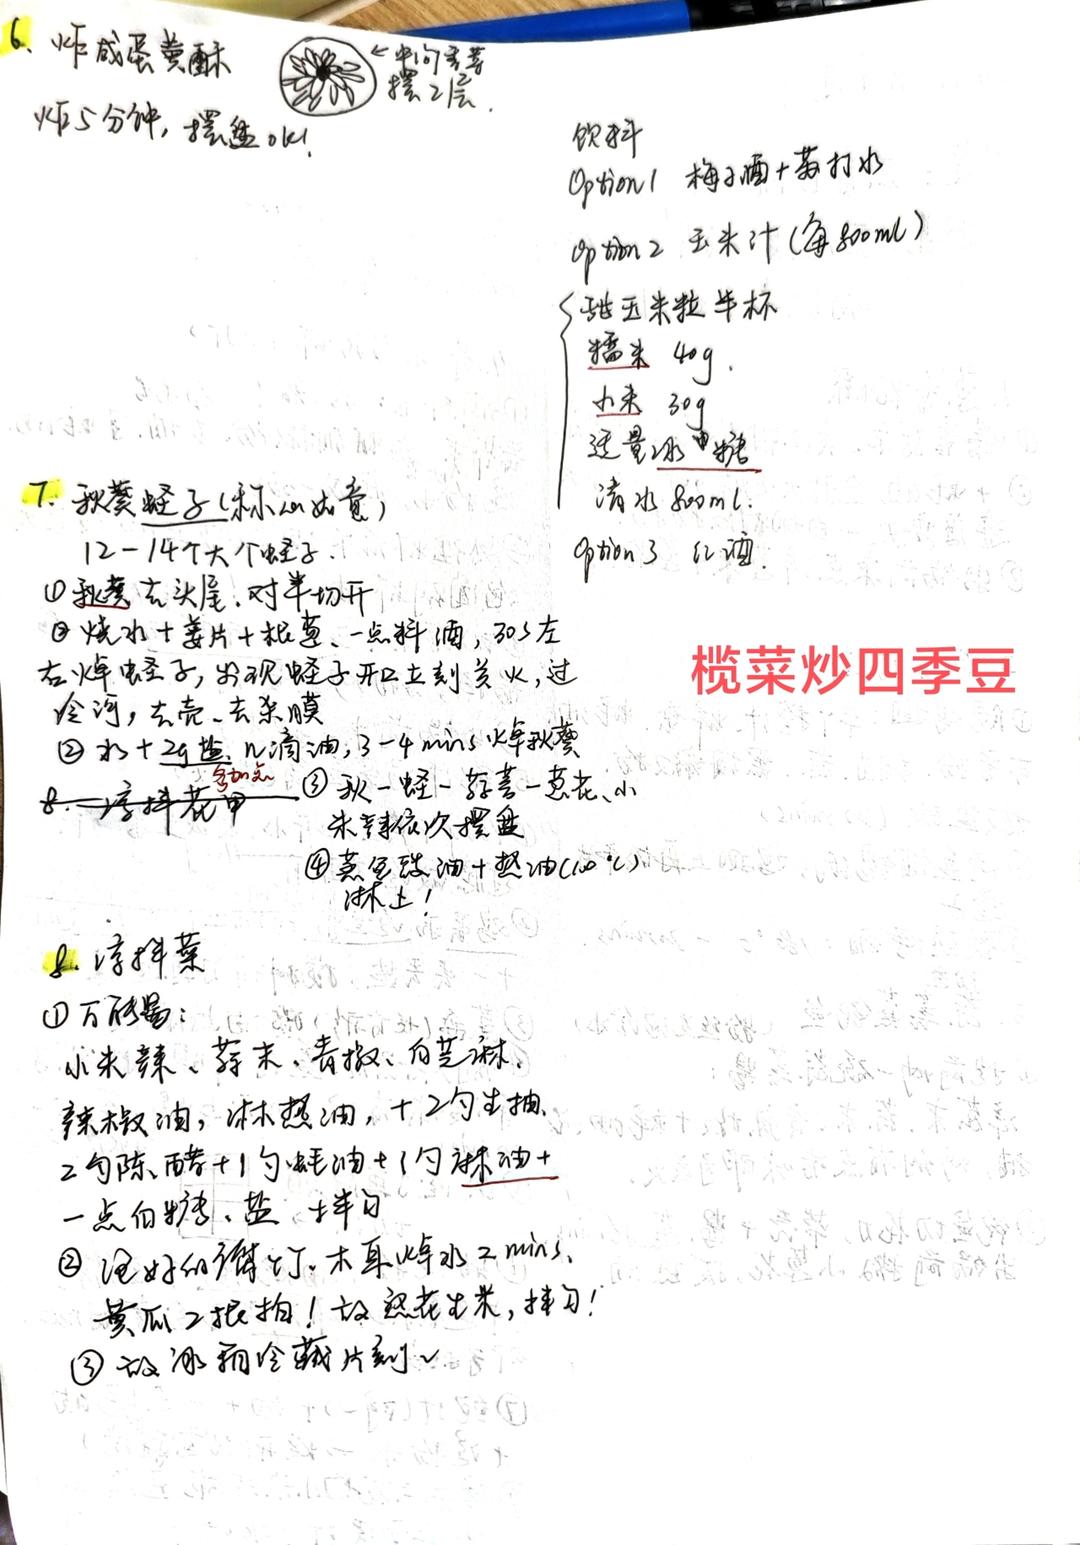 6、炸咸蛋黄酥
←中间香菩
摆2层.
炸5分钟, 摆盘ok!
饮料
Option1 梅子酒+苏打水
Option2 玉米汁(每800ml)
甜玉米粒半杯
糯米 40g.
小米 30g
适量冰糖
清水800ml.
Option3 红酒.
7. 秋葵蛏子(称心如意)
12-14个大个蛏子.
①秋葵去头尾、对半切开
②烧水+姜片+根葱、一点料酒, 30s左
右焯蛏子, 发现蛏子开口立刻关火, 过
冷河, 去壳、去杂膜
②水+2g盐、n滴油, 3-4mins焯秋葵
8. 凉拌花甲
③秋-蛏-蒜蓉-葱花、小
米辣依次摆盘
④蒸鱼豉油+热油(100℃)
淋上!
榄菜炒四季豆
8. 凉拌菜
①万能酱:
小米辣、蒜末、青椒、白芝麻、
辣椒油, 淋热油, +2勺生抽、
2勺陈醋+1勺蚝油+1勺麻油+
一点白糖、盐 拌匀
②泡好的腐竹、木耳焯水2mins、
黄瓜2根拍! 放熟花生米, 拌匀!
③放冰箱冷藏片刻~